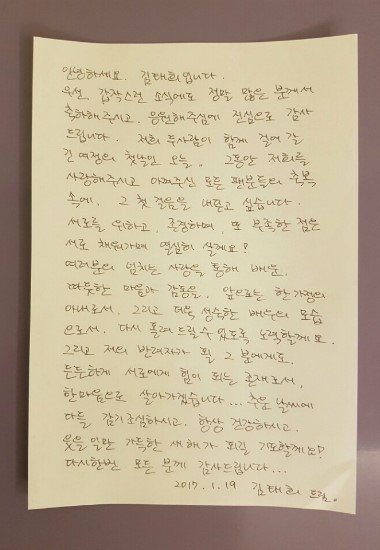 안녕하세요. 김태희입니다.
우선, 갑작스런 소식에도 정말 많은 분께서
축하해주시고, 응원해주심에 진심으로 감사
드립니다. 저희 두사람이 함께 걸어 갈
긴 여정의 첫날인 오늘, 그동안 저희를
사랑해주시고 아껴주신 모든 팬분들의 축복
속에, 그 첫 걸음을 내딛고 싶습니다.
서로를 위하고, 존경하며, 또 부족한 점은
서로 채워가며 열심히 살게요!
여러분의 넘치는 사랑을 통해 배운,
따뜻한 마음과 감동을, 앞으로는 한 가정의
아내로서, 그리고 더욱 성숙한 배우의 모습
으로서, 다시 돌려 드릴 수 있도록 노력할게요.
그리고 저의 반려자가 될 그 분에게도,
든든하게 서로에게 힘이 되는 존재로서,
한마음으로 살아가겠습니다... 추운 날씨에
다들 감기조심하시고, 항상 건강하시고,
웃을 일만 가득한 새해가 되길 기도할게요!
다시한번 모든 분께 감사드립니다...
2017. 1. 19 김태희 드림.